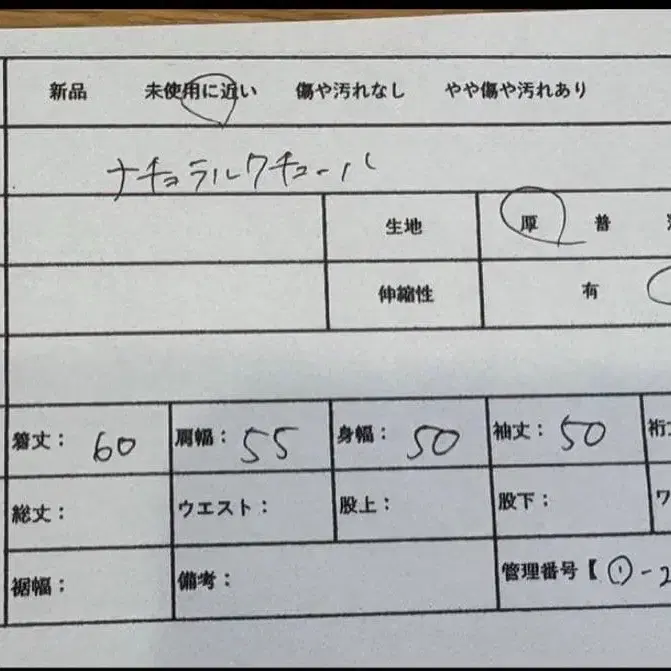 新品 未使用に近い 傷や汚れなし やや傷や汚れあり
ナチュラルクチュール
生地 厚 普
伸縮性 有
着丈： 60 肩幅： 55 身幅： 50 袖丈： 50 裄
総丈： ウエスト： 股上： 股下： ワ
裾幅： 備考： 管理番号【 ①-2